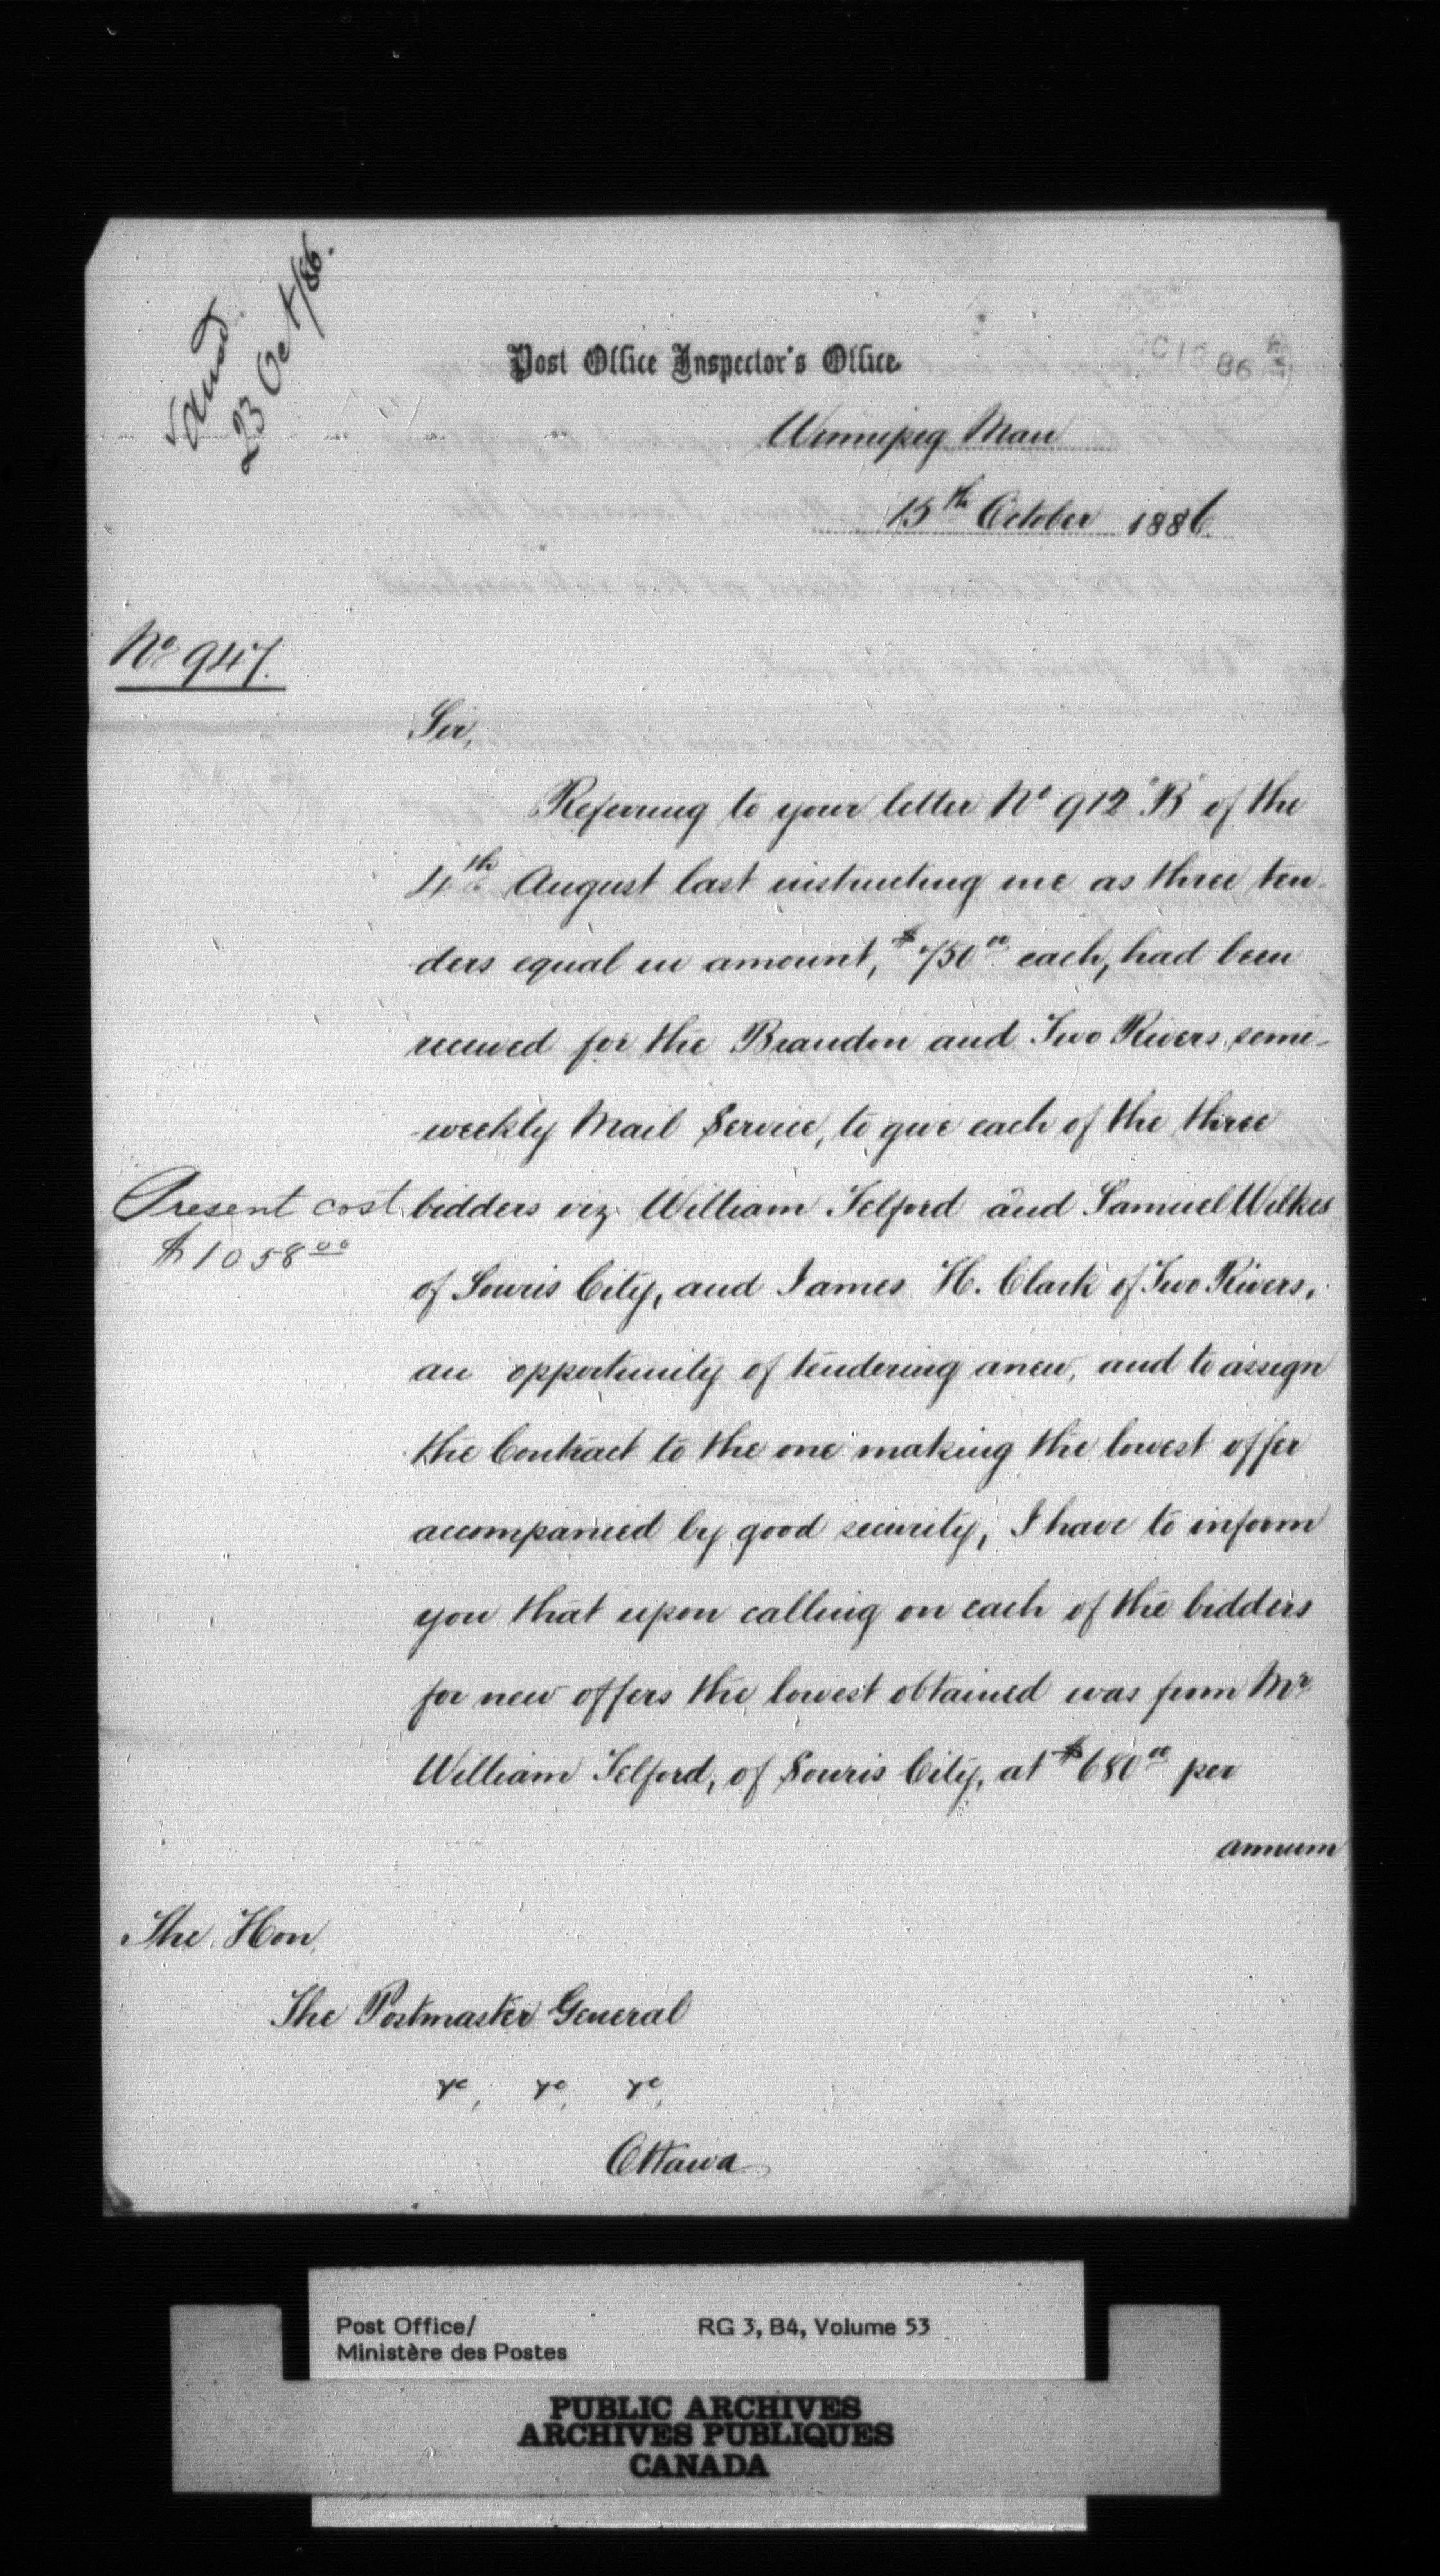 23 Oct/86.
Post Office Inspector's Office
OC 18 86
Winnipeg Man
15th October 1886
No 947.
Sir,
Referring to your letter No 912 "B" of the
4th August last instructing me as three ten-
ders equal in amount, $750.00 each, had been
received for the Brandon and Two Rivers semi-
-weekly Mail Service, to give each of the three
Present cost
$1058.00
bidders viz William Telford and Samuel Wilkes
of Souris City, and James H. Clark of Two Rivers,
an opportunity of tendering anew, and to assign
the Contract to the one making the lowest offer
accompanied by good security, I have to inform
you that upon calling on each of the bidders
for new offers the lowest obtained was from Mr
William Telford, of Souris City, at $680.00 per
annum
The Hon,
The Postmaster General
&c, &c, &c,
Ottawa
Post Office/
Ministère des Postes
RG 3, B4, Volume 53
PUBLIC ARCHIVES
ARCHIVES PUBLIQUES
CANADA